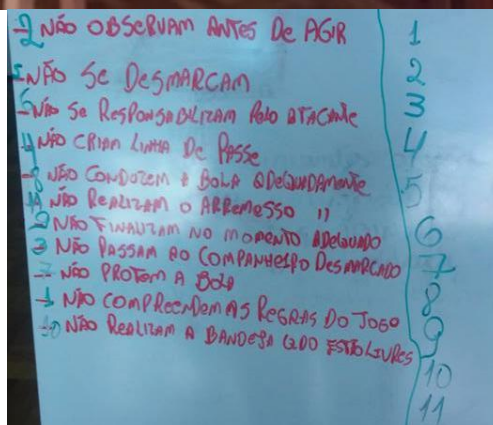 2 NÃO OBSERVAM ANTES DE AGIR
5 NÃO SE DESMARCAM
6 NÃO SE RESPONSABILIZAM PELO ATACANTE
4 NÃO CRIAM LINHA DE PASSE
8 NÃO CONDUZEM A BOLA ADEQUADAMENTE
NÃO REALIZAM O ARREMESSO "
NÃO FINALIZAM NO MOMENTO ADEQUADO
3 NÃO PASSAM AO COMPANHEIRO DESMARCADO
NÃO PROTEM A BOLA
1 NÃO COMPREENDEM AS REGRAS DO JOGO
10 NÃO REALIZAM A BANDEJA QDO ESTÃO LIVRES
1
2
3
4
5
6
7
8
9
10
11